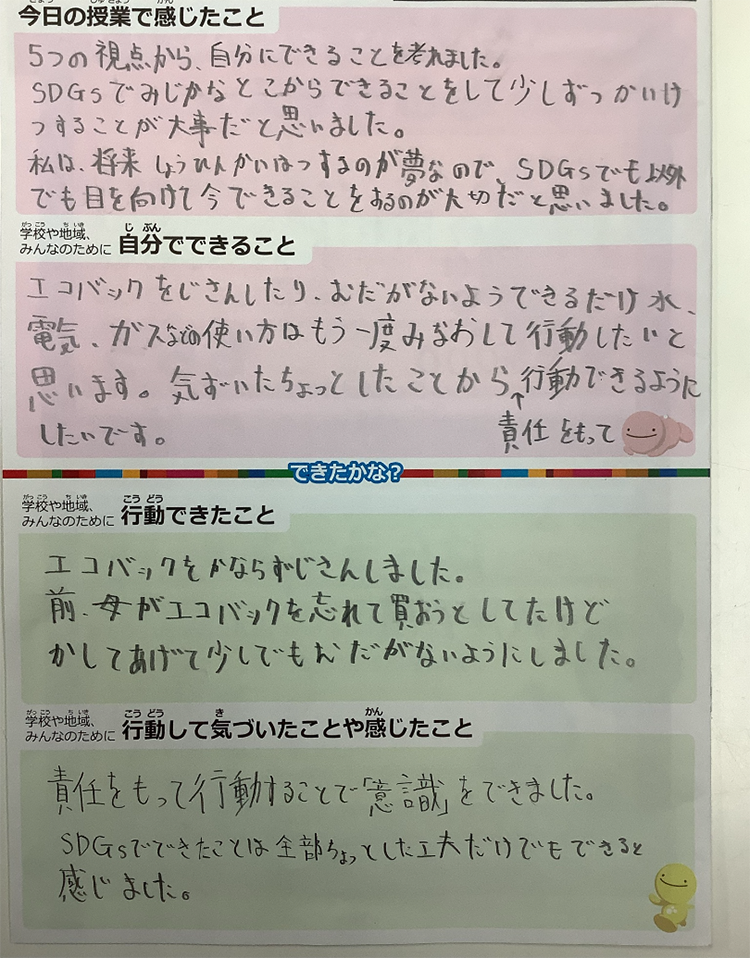 今日の授業で感じたこと
5つの視点から、自分にできることを考れました。
SDGsでみじかなとこからできることをして少しずつかいけ
つすることが大事だと思いました。
私は、将来しょうひんかいはつするのが夢なので、SDGsでも以外
でも目を向けて今できることをするのが大切だと思いました。
学校や地域、みんなのために 自分でできること
エコバックをじさんしたり、むだがないようできるだけ水、
電気、ガスなどの使い方はもう一度みなおして行動したいと
思います。気ずいたちょっとしたことから↑行動できるように
したいです。 責任をもって
できたかな?
学校や地域、みんなのために 行動できたこと
エコバックをかならずじさんしました。
前、母がエコバックを忘れて買おうとしてたけど
かしてあげて少しでもむだがないようにしました。
学校や地域、みんなのために 行動して気づいたことや感じたこと
責任をもって行動することで「意識」をできました。
SDGsでできたことは全部ちょっとした工夫だけでもできると
感じました。